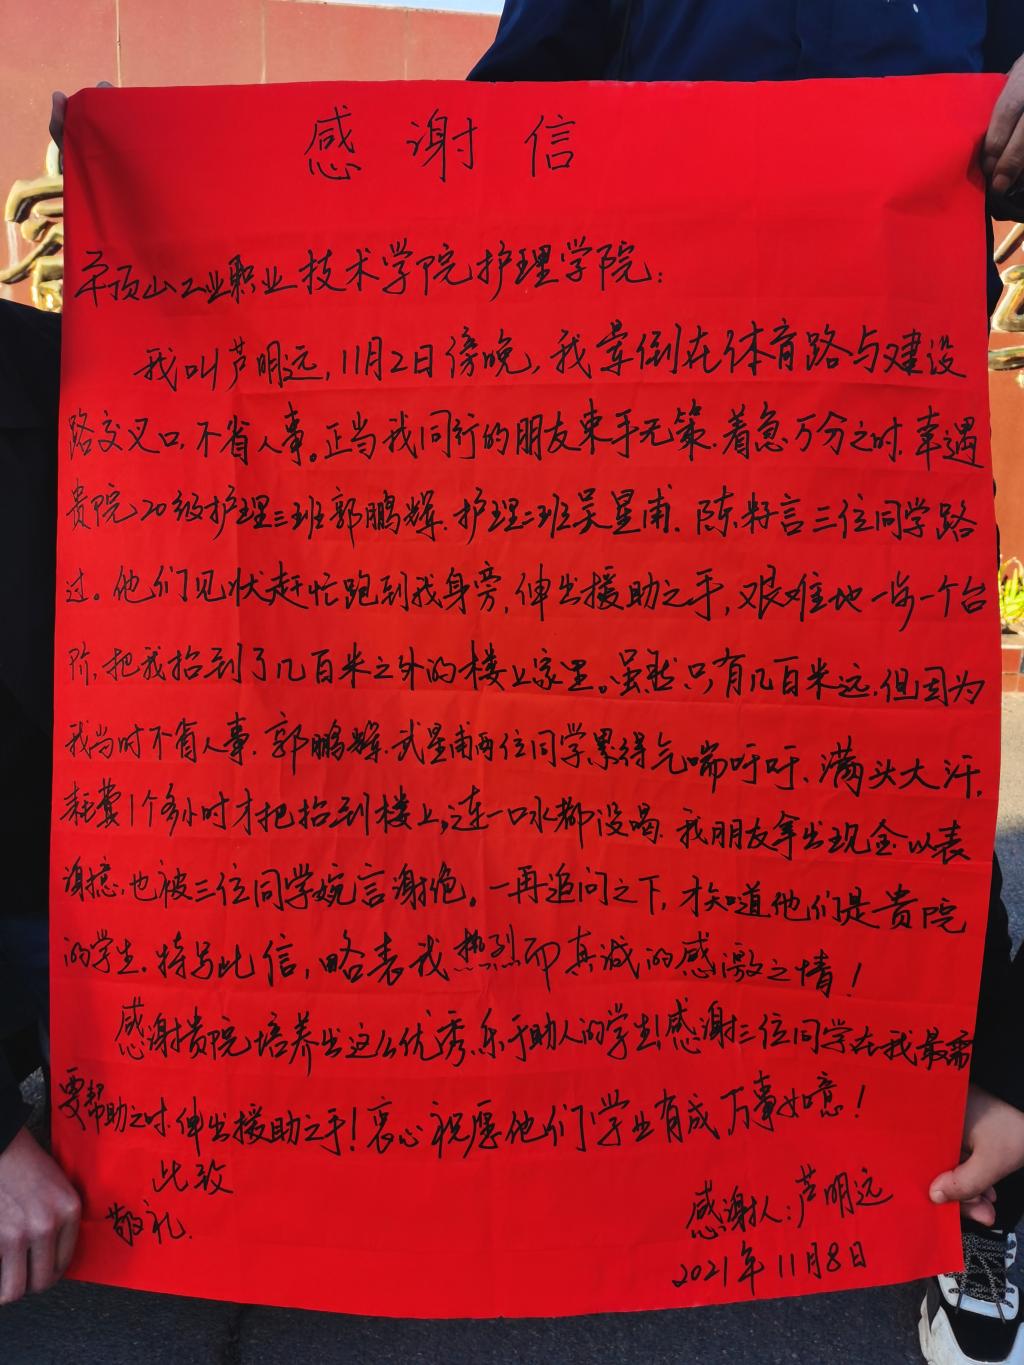 感谢信
平顶山工业职业技术学院护理学院：
我叫芦明远，11月2日傍晚，我晕倒在体育路与建设
路交叉口，不省人事。正当我同行的朋友束手无策、着急万分之时，幸遇
贵院20级护理三班郭鹏辉、护理二班吴星甫、陈籽言三位同学路
过。他们见状赶忙跑到我身旁，伸出援助之手，艰难地一步一个台
阶，把我抬到了几百米之外的楼上家里。虽然只有几百米远，但因为
我当时不省人事，郭鹏辉、武星甫两位同学累得气喘吁吁、满头大汗，
耗费1个多小时才把抬到楼上，连一口水都没喝。我朋友拿出现金以表
谢意，也被三位同学婉言谢绝。一再追问之下，才知道他们是贵院
的学生。特写此信，略表我热烈而真诚的感激之情！
感谢贵院培养出这么优秀、乐于助人的学生！感谢三位同学在我最需
要帮助之时，伸出援助之手！衷心祝愿他们学业有成，万事如意！
此致
敬礼.
感谢人：芦明远
2021年11月8日